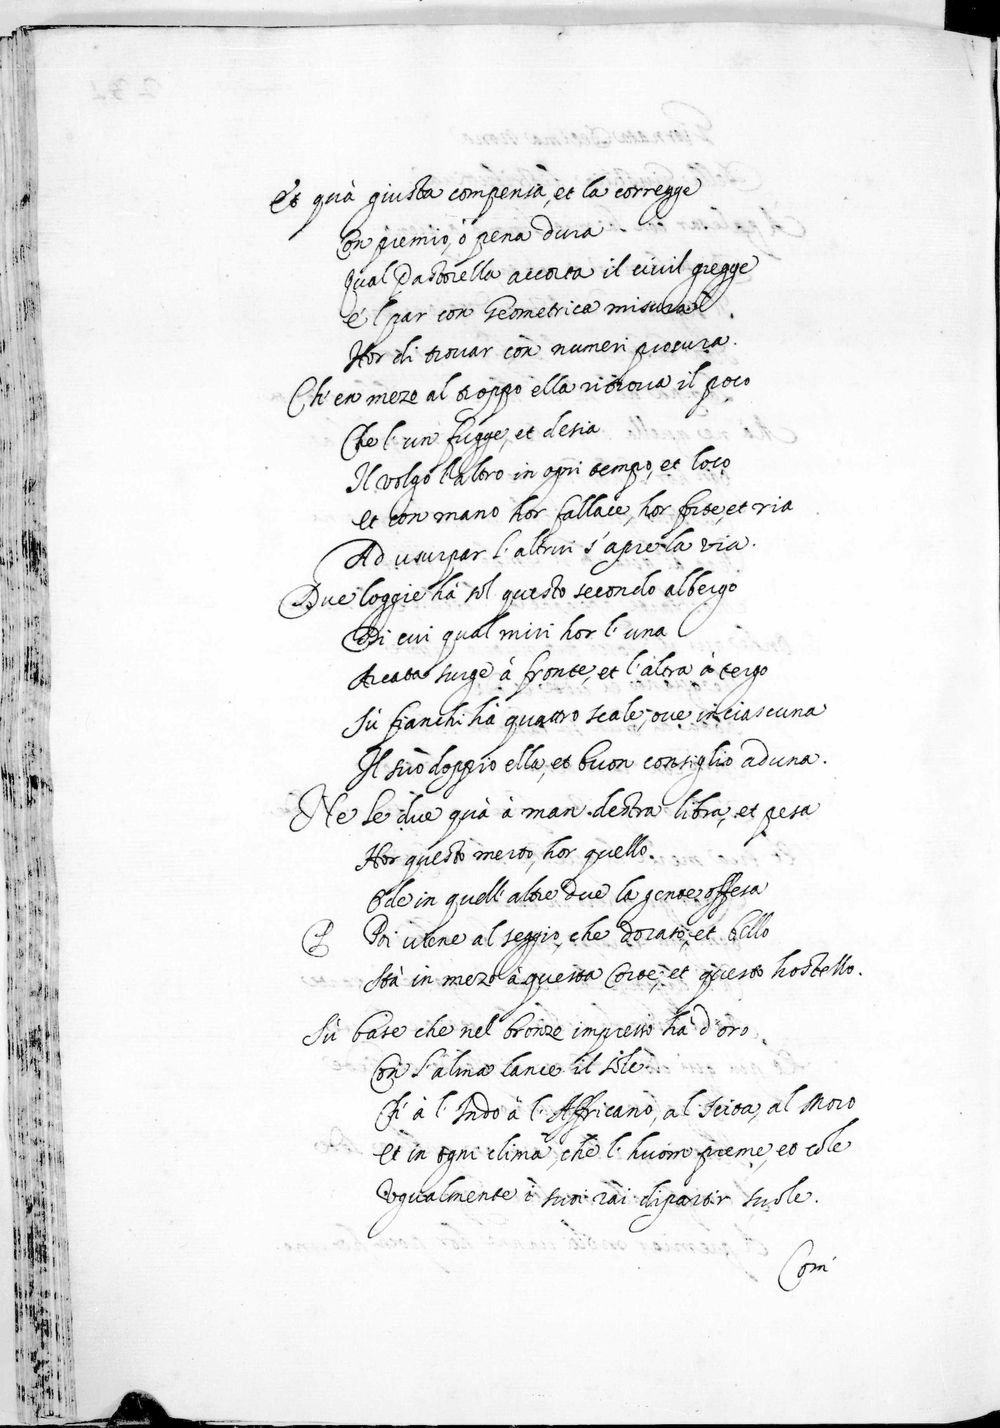 Et quà giusta compensa, et la corregge
Con premio, ò pena dura
Qual Pastorella accorta il civil gregge
E'l par con Geometrica misura
Hor di trovar con numeri procura.
Ch'en mezo al troppo ella ritrova il poco
Che l'un fugge, et desia
Il volgo l'altro in ogni tempo, et loco
Et con mano hor fallace, hor forte, et ria
Ad usurpar l'altrui s'apre la via.
Due loggie hà sol questo secondo albergo
Di cui qual miri hor l'una
Arcata surge à fronte, et l'altra à tergo
Sù fianchi hà quattro scale, ove in ciascuna
Il suo doppio ella, et buon consiglio aduna.
Ne le due quà à man destra libra, et pesa
Hor questo merto, hor quello.
Ode in quell'altre due la gente offesa
E Poi viene al seggio, che dorato, et bello
Stà in mezo à questa Corte, et questo hostello.
Sù base che nel bronze impresso hà d'oro
Con l'alma lance il sole.
Ch'à l'Indo à l'Affricano, al Scita, al Moro
Et in ogni clima, che l'huom preme, et cole
Ugualmente i suoi rai dipartir suole.
Com'